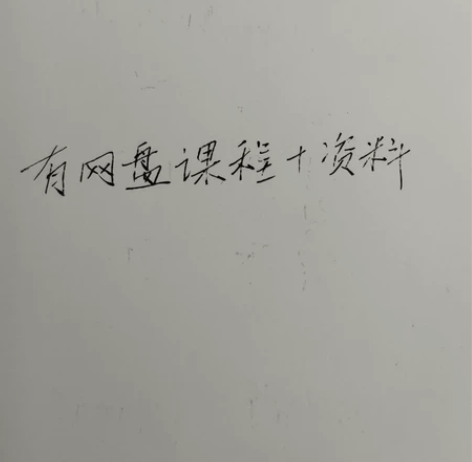 有网盘课程+资料